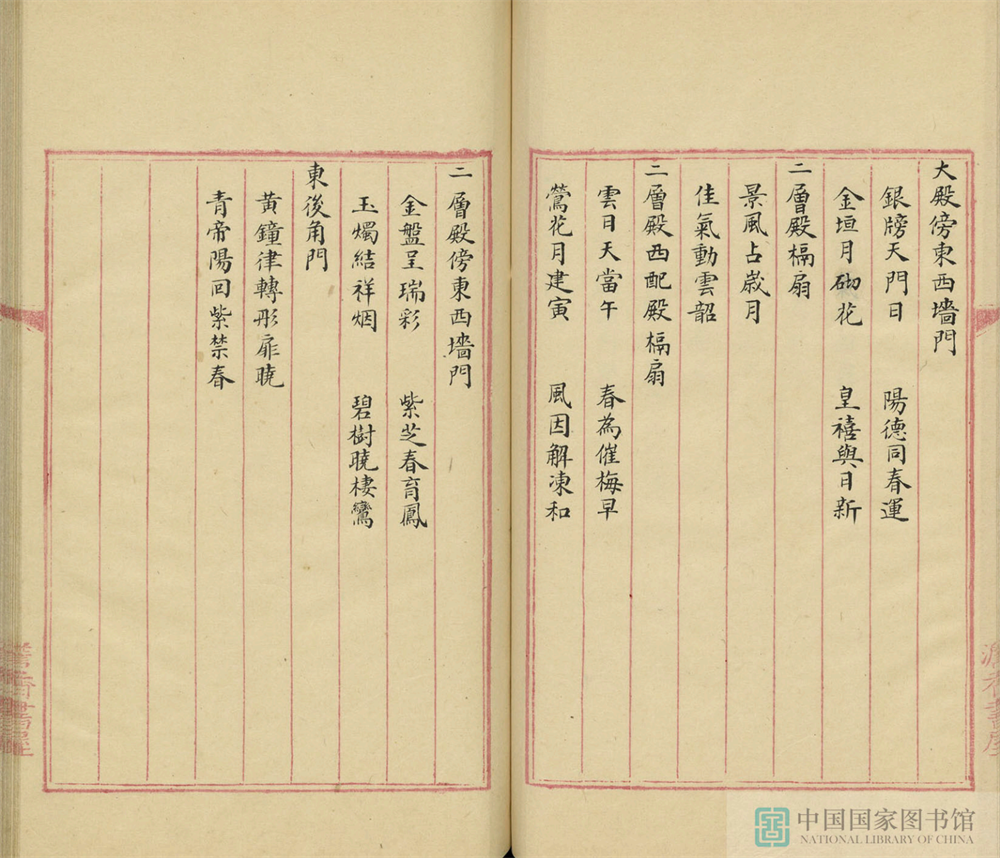 大殿傍東西墻門
銀牓天門日　陽德同春運
金垣月砌花　皇禧與日新
二層殿槅扇
景風占歲月
佳氣動雲韶
二層殿西配殿槅扇
雲日天當午　春為催梅早
鶯花月建寅　風因解凍和
二層殿傍東西墻門
金盤呈瑞彩　紫芝春育鳳
玉燭結祥烟　碧樹曉棲鸞
東後角門
黃鐘律轉彤扉曉
青帝陽回紫禁春
中国国家图书馆
NATIONAL LIBRARY OF CHINA